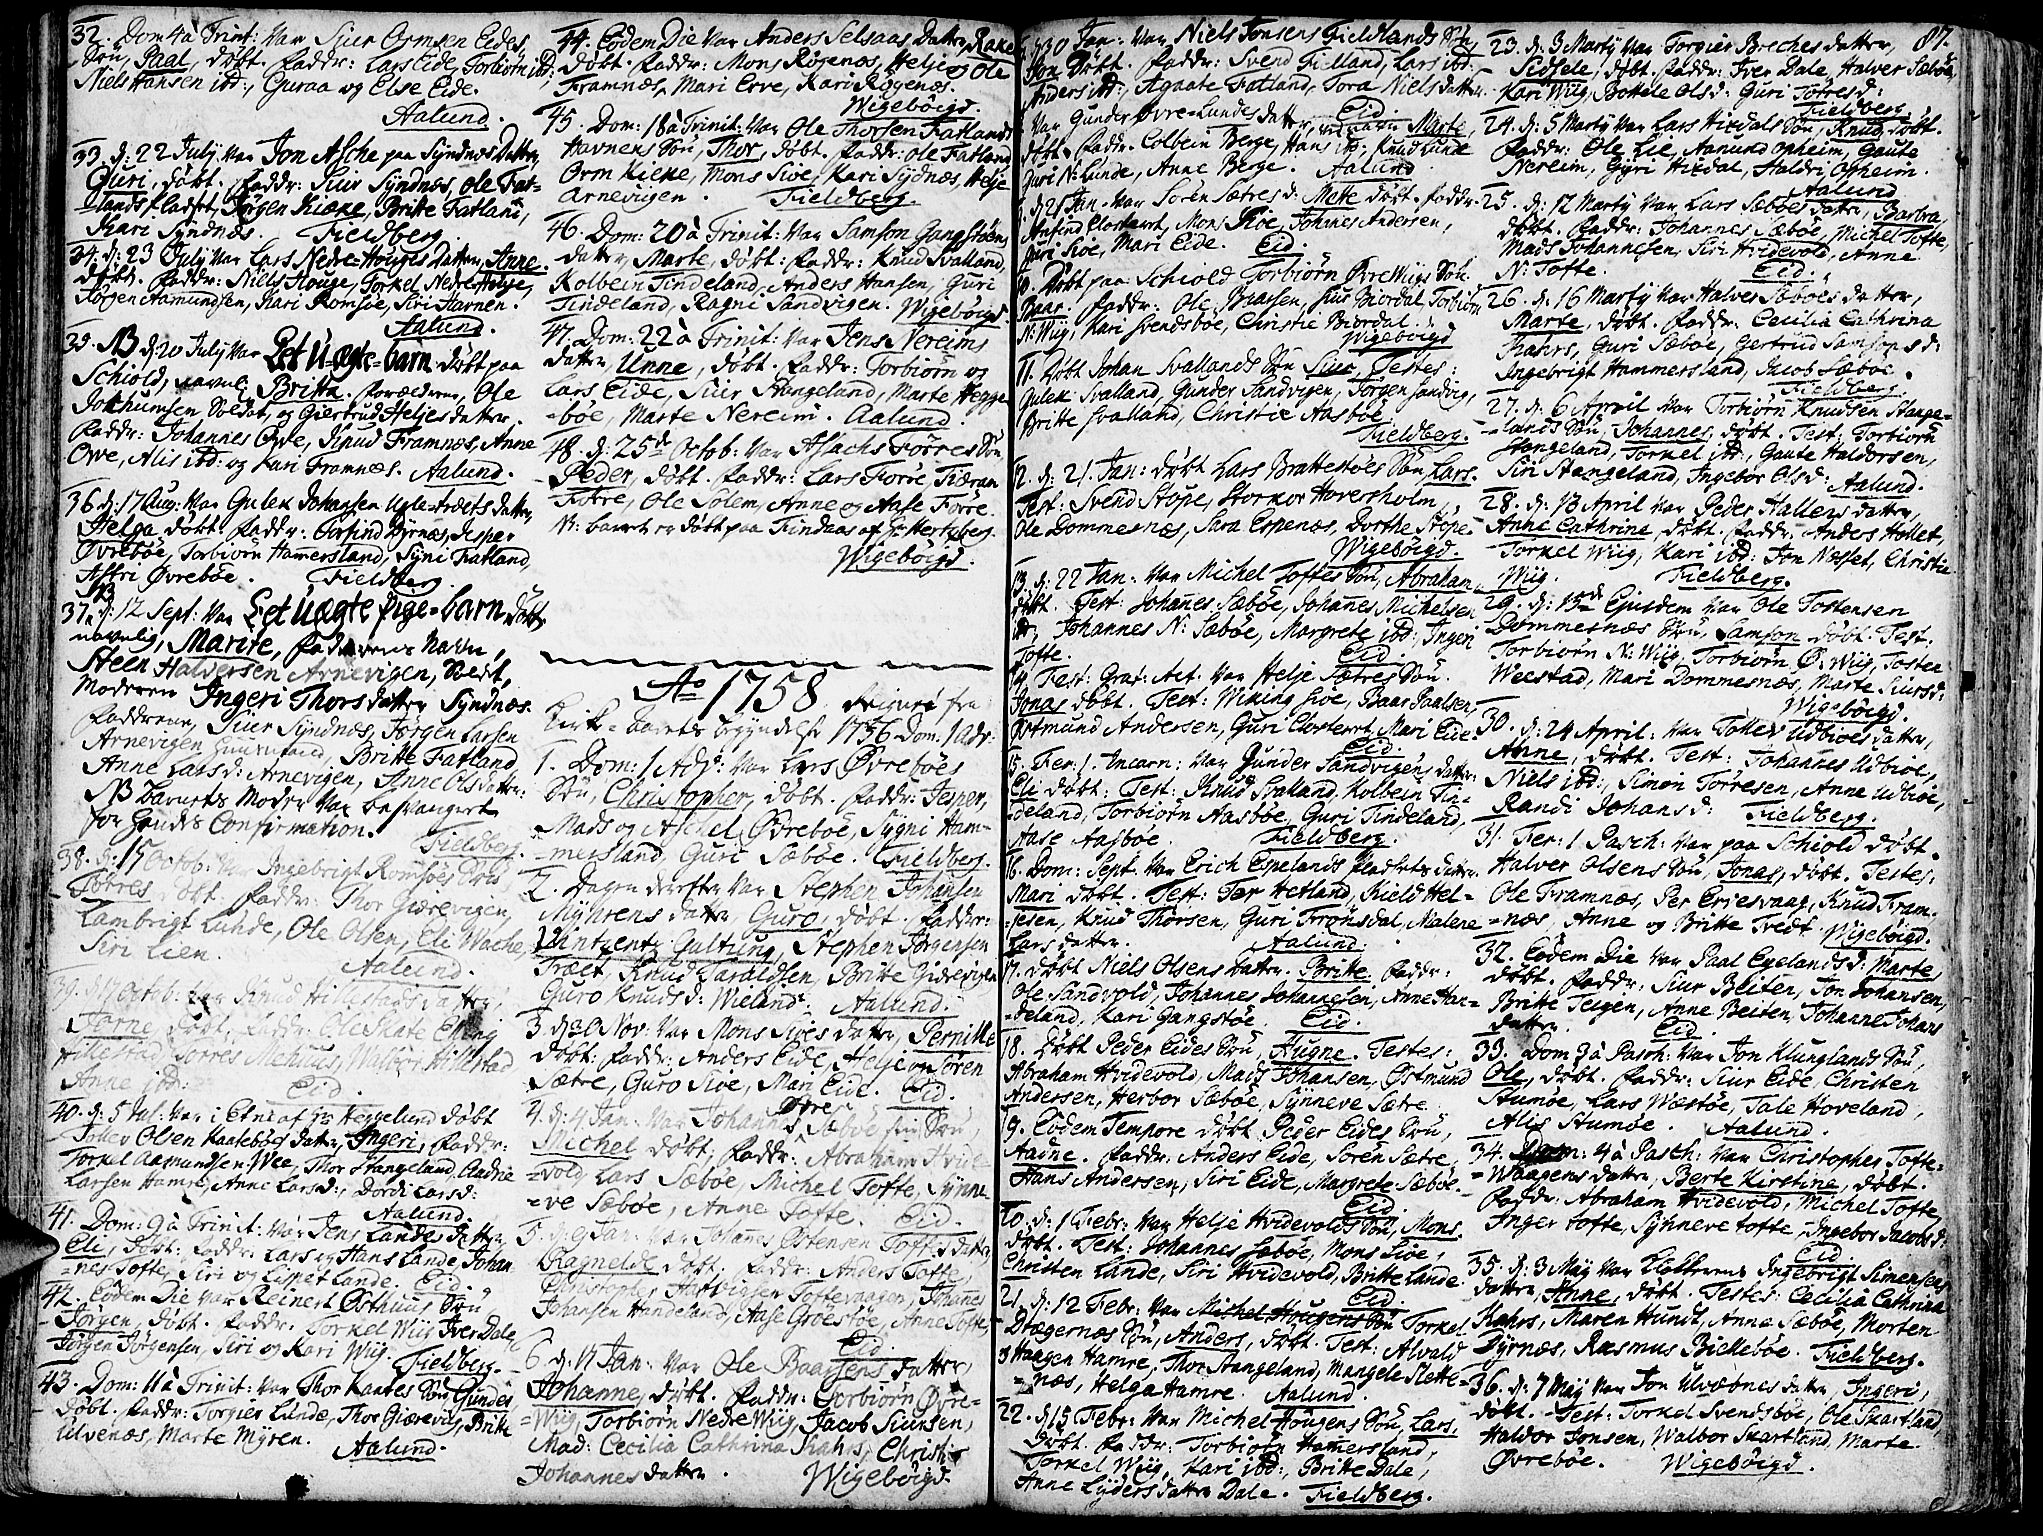 32. Dom 4 à Trinit: var Siur Ormsen Eides
Søn, Paal, døbt. Faddr: Lars Eide, Torbiørn ibd:
Niels Hansen ibd:, Guraa og Else Eide.
Aalund.
33. d: 22 July var Jon Asche paa Syndnæs Datter,
Guri, døbt. Faddr: Siur Syndnæs, Ole Fat-
lands Pladset, Jørgen Kieke, Britte Fatland,
Kari Syndnæs. Fieldberg.
34. d: 23 July var Lars Nedre-Houges Datter, Anne.
døbt. Faddr: Niels Houge, Torkel Nedre Helje,
Jørgen Aamundsen, Kari Romsøe, Siri Havnen.
Aalund.
35. NB d: 20 July var Eet Uægte-barn døbt paa
Schiold, navnl: Britta. Forældrene, Ole
Jokhumsen Soldat, og Giertrud Heljesdatter.
Faddr: Johannes Øvre, Knud Framnæs, Anne
Owe, Alis ibd: og Kari Framnæs. Aalund.
36. d: 17 Aug: var Gulek Johansen Ugle-trædets datter,
Helga døbt. Faddr: Torfind Dyrnæs, Jesper
Øvrebøe, Torbiørn Hammersland, Syni Fatland,
Astri Øvrebøe. Fieldberg.
NB
37. d: 12 Sept: var Eet Uægte Pige-barn døbt,
navnlig, Marite, Faderens Navn,
Steen Halversen Arnevigen, Soldt,
Moderen Ingeri Thorsdatter Syndnæs.
Faddrene, Siur Syndnæs, Jørgen Larsen
Arnevigen, Britte Fatland
Anne Larsd: Arnevigen, Anne Olsdatter:
NB Barnets Moder var besvangert
for hendes Confirmation.
Fieldberg.
38. d: 15 Octob: var Ingebrigt Romsøes Søn
Tørres døbt. Faddr: Thor Giærevigen,
Lambrigt Lunde, Ole Olsen, Eli Wache,
Siri Lien.
Aalund.
39. d: Octob: var Knud Hillestads datter
døbt. Faddr: Ole Skate
Hillestad, Torres Mehuus, Walbor Hillestad
Anne ibd:
Eid.
40. d: 5 Jul: var i Etne af Hr Heggelund døbt
Tollev Olsen Kaatebøes datter, Ingeri, Faddr:
Torkel Aamundsen Wee, Thor Stangeland, Aadne
Larsen Hamre, Anne Larsd:, Dordi Larsd:
Aalund.
41. Dom: 9 à Trinit: var Jens Landes datter
Eli, døbt: Faddr: Lars og Hans Lande, Johan-
nes Tofte, Siri og Lispet Lande. Eid.
42. Eodem Die var Reinert Østhuus Søn
Jørgen, døbt. Faddr: Torkel Wiig Iver Dale,
Jørgen Jørgensen, Siri og Kari Wiig. Fieldberg.
43. Dom: 11 à Trinit: var Thor Kaates Søn Gunder
døbt. Faddr: Torgier Lunde, Thor Giærevig, Britte
Ulvenæs, Marte Myren.
Aalund.
44. Eodem Die var Anders Selsaas Datter, Rakel
døbt. Faddr: Mons Røgenæs, Helje og Ole
Framnæs, Mari Erve, Kari Røgenæs.
Wigebøigd.
45. Dom: 18 à Trinit: var Ole Thorsen Fatlands
Havnens Søn, Thor, døbt. Faddr: Ole Fatland
Orm Kieke, Mons Sioe, Kari Sydnæs, Helje
Arnevigen. Fieldberg.
46. Dom: 20 à Trinit: var Samson Gangstøens
datter, Marte, døbt: Faddr: Knud Svalland,
Kolbein Tindeland, Anders Hansen, Guri
Tindeland, Ragni Sandvigen. Wigebøigd.
47. Dom: 22 à Trinit: var Jens Nereims
datter, Unne, døbt. Faddr: Torbiørn og
Lars Eide, Siur Stangeland, Marte Hegge-
bøe, Marte Nereim. Aalund.
48. d: 25de Octob: var Aslachs Førres Søn
Peder, døbt. Faddr: Lars Førre Tiæran
Førre, Ole Solem, Anne og Aase Førre.
N: barnet er døbt paa Tindaas af Hr Hertzberg.
Wigebøigd.
Ao 1758
Kirk-Aarets begyndelse 1756 Dom: 1 Adv:
1. Dom: 1 Adv: var Lars Øvrebøes
Søn, Christopher, døbt. Faddr: Jesper,
Mads og Aschel Øvrebøe, Sygni Ham-
mersland, Guri Sæbøe. Fieldberg.
2. Dagen derefter var Stephen Johansen
Myhrens datter, Guro, døbt. Faddr:
Vintzentz Galtung, Stephen Jørgensen
Træet, Knud Haraldsen, Britte Gierevigen
Guro Knudsd: Wieland. Aalund.
3. d: 30 Nov: var Mons Sioes datter, Pernille
døbt: Faddr: Anders Eide, Helje og Søren
Sætre, Guro Sioe, Mari Eide. Eid.
4. d: 4 Jan: var Johannes Øvre Sæbøe Søn,
Michel døbt, Faddr: Abraham Hvide-
vold, Lars Sæbøe, Michel Tofte, Synne-
ve Sæbøe, Anne Tofte. Eid.
5. d: 9 Jan: var Johannes Østensen Toftes datter,
Ragnelde døbt. Faddr: Anders Tofte,
Christopher Hartvigsen Toftevaagen, Johannes
Johansen Handeland, Aase Grøestøe, Anne Tofte,
Eid.
6. d: 17 Jan: var Ole Baarsens datter,
Johanne, døbt. Faddr: Torbiørn Øvre-
Wiig, Torbiørn Nedre Wiig, Jacob Siursen,
Mad: Cecilia Cathrina Kahrs, Christi
Johannesdatter.
Wigebøigd.
87.
30 Jan: var Niels Jonsens Fieldlands Søn
Jon døbt. Faddr: Svend Fielland, Lars ibd:
Anders ibd:, Agaate Fatland, Tora Nielsdatter.
Eid
Var Gunder Øvre-Lundes datter, ved navn Marte,
døbt. Faddr: Colbein Berge, Hans ibd: Knud Lunde
Guri N: Lunde, Anne Berge. Aalund.
d: 21 Jan: var Søren Sætres d: Mette døbt. Faddr:
Anfind Clostervt, Mons Sioe, Johannes Andersen,
Guri Sioe, Mari Eide. Eid.
10. Døbt paa Schiold Torbiørn Øvre Wiigs Søn
Baar. Faddr: Ole Baarsen, Siur Biordal, Torbiørn
N: Wiig, Kari Svendsbøe, Christie Biordal.
Wigebøigd
11. Døbt Johan Svallands Søn Siur, Testes:
Gulek Svalland, Gunder Sandvigen, Jørgen Sandvig,
Britte Svalland, Christie Aasbøe.
Fieldberg.
12. d: 21. Jan: døbt Lars Brattestøes Søn, Lars.
Test: Svend Støpe, Storkor Hoversholm,
Ole Dommesnæs, Sara Espenæs, Dorthe Støpe.
Wigebøigd.
13. d: 22 Jan: var Michel Toftes Søn, Abraham
døbt. Test: Johannes Sæbøe, Johannes Michelsen
ibd, Johannes N: Sæbøe, Margrete ibd: Ingeri
Tofte. Eid.
14 Fest: Grat: Act: var Helje Sætres Søn.
Jonas døbt. Test: Wiking Sioe, Baar Paalsen,
Østmund Andersen, Guri Clostervt, Mari Eide.
Eid.
15. Fer: 1. Incarn: var Gunder Sandvigens datter:
Eli døbt: Test: Knud Svalland, Kolbein Tin-
deland, Torbiørn Aasbøe, Guri Tindeland,
Aase Aasbøe. Fieldberg.
16. Dom: Sept: var Erich Espelands Pladsets datter
Mari døbt. Test: Hetland, Kield Hel-
jesen, Knud Thorsen, Guri Frønsdal, Malene
Larsdatter. Aalund.
17. Døbt Niels Olsens datter. Britte. Faddr:
Ole Sandvold, Johannes Johannesen, Anne Han-
deland, Kari Gangstøe. Eid.
18. Døbt Peder Eides Søn, Hugne. Testes:
Abraham Hvidevold, Mads Johansen, Østmund
Andersen, Herbor Sæbøe, Synneve Sætre.
19. Eodem Tempore døbt Peder Eides Søn,
Aadne. Faddr: Anders Eide, Søren Sætre,
Hans Andersen, Siri Eide, Margrete Sæbøe.
Eid.
20. d: 1 Febr: var Helje Hvidevolds Søn, Mons.
døbt. Test: Johannes Sæbøe, Mons Sioe,
Christen Lande, Siri Hvidevold, Britte Lande.
Eid.
21. d: 12 Febr: var Michel Hougens Søn Torkel
Drægernæs Søn, Anders, døbt. Test: Alvald
Haagen Hamre, Thor Stangeland, Mangele Slette-
næs, Helga Hamre. Aalund.
22. d: 15 Febr: var Michel Hougens Søn Lars.
døbt. Faddr: Torbiørn Hammersland,
Torkel Wiig, Kari ibd:, Britte Dale,
Anne Lydersdatter Dale. Fieldberg.
23. d: 3 Marty var Torgier Breches datter,
Sidsele, døbt. Faddr: Iver Dale, Halver Sæbøe,
Kari Wiig, Bottele Olsd: Guri Torresd:
Fieldberg.
24. d: 5 Marty var Lars Hierdals Søn, Knud, døbt.
Faddr: Ole Lie, Aamund Opheim, Gaute
Nereim, Gyri Hierdal, Haldri Opheim.
Aalund
25. d: 12 Marty var Lars Sæbøes datter, Barbra,
døbt. Faddr: Johannes Sæbøe, Michel Tofte,
Mads Johannesen, Siri Hvidevold, Anne
N: Tofte. Eid.
26. d: 16 Marty var Halver Sæbøes datter,
Marte, døbt. Faddr: Cecilia Cathrina
Kahrs, Guri Sæbøe, Gertrud Samsonsd:
Ingebrigt Hammersland, Jacob Sæbøe.
Fieldberg.
27. d: 6 April var Torbiørn Knudsen Stange-
lands Søn, Johannes, døbt. Test: Torbiørn
Stangeland, Torkel ibd:, Gaute Haldorsen,
Siri Stangeland, Ingebor Olsd: Aalund.
28. d: 13 April var Peder Hallens datter,
Anne Cathrine, døbt. Faddr: Anders Hollet,
Torkel Wiig, Kari ibd: Jon Nesset, Christie
Wiig. Fieldberg.
29. d: 15de Ejusdem var Ole Tostensen
Dommesnæs Søn, Samson døbt. Test:
Torbiørn N: Wiig, Torbiørn Ø: Wiig, Tosten
Weestad, Mari Dommesnæs, Marte Siursd:
Wigebøigd.
30. d: 24 April: var Tollev Udbioes datter,
Anne, døbt. Test: Johannes Udbioe,
Niels ibd:, Simon Torresen, Anne Udbioe,
Randi Johansd: Fieldberg.
31. Fer: 1 Pasch: var paa Schiold døbt
Halver Olsens Søn, Jonas, døbt. Testes:
Ole Framnæs, Per Eriesvaag, Knud Fram-
næs, Anne og Britte Tvedt. Wigebøigd.
32. Eodem Die var Paal Egelands d: Marte,
døbt. Faddr: Siur Beiten, Jon Johansen,
Britte Teigen, Anne Beiten, Johanne Johans
datter. Eid.
33. Dom 3 à Pasch: var Jon Klunglands Søn,
Ole, døbt. Faddr: Siur Eide, Christen
Stumøe, Lars Wæstøe, Tale Hoveland,
Alis Stumøe. Aalund.
34. Dom: 4 à Pasch: var Christopher Tofte-
Waagens datter, Berte Kirstine, døbt.
Faddr: Abraham Hvidevold, Michel Tofte,
Inger Tofte, Synneve Tofte, Ingebor Jacobsd:
Eid.
35. d: 3 May var Klokkerens Ingebrigt Simensens
datter, Anne, døbt. Testes: Cecilia Cathrina
Kahrs, Maren Hundt, Anna Sæbøe, Morten
Dyrnæs, Rasmus Bickebøe. Fieldberg.
36. d: 7 May var Jon Ulvæbnes datter, Ingeri,
døbt. Test: Torkel Svendsbøe, Ole Skartland,
Haldor Jonsen, Walbor Skartland, Marte
Øvrebøe. Wigebøigd.